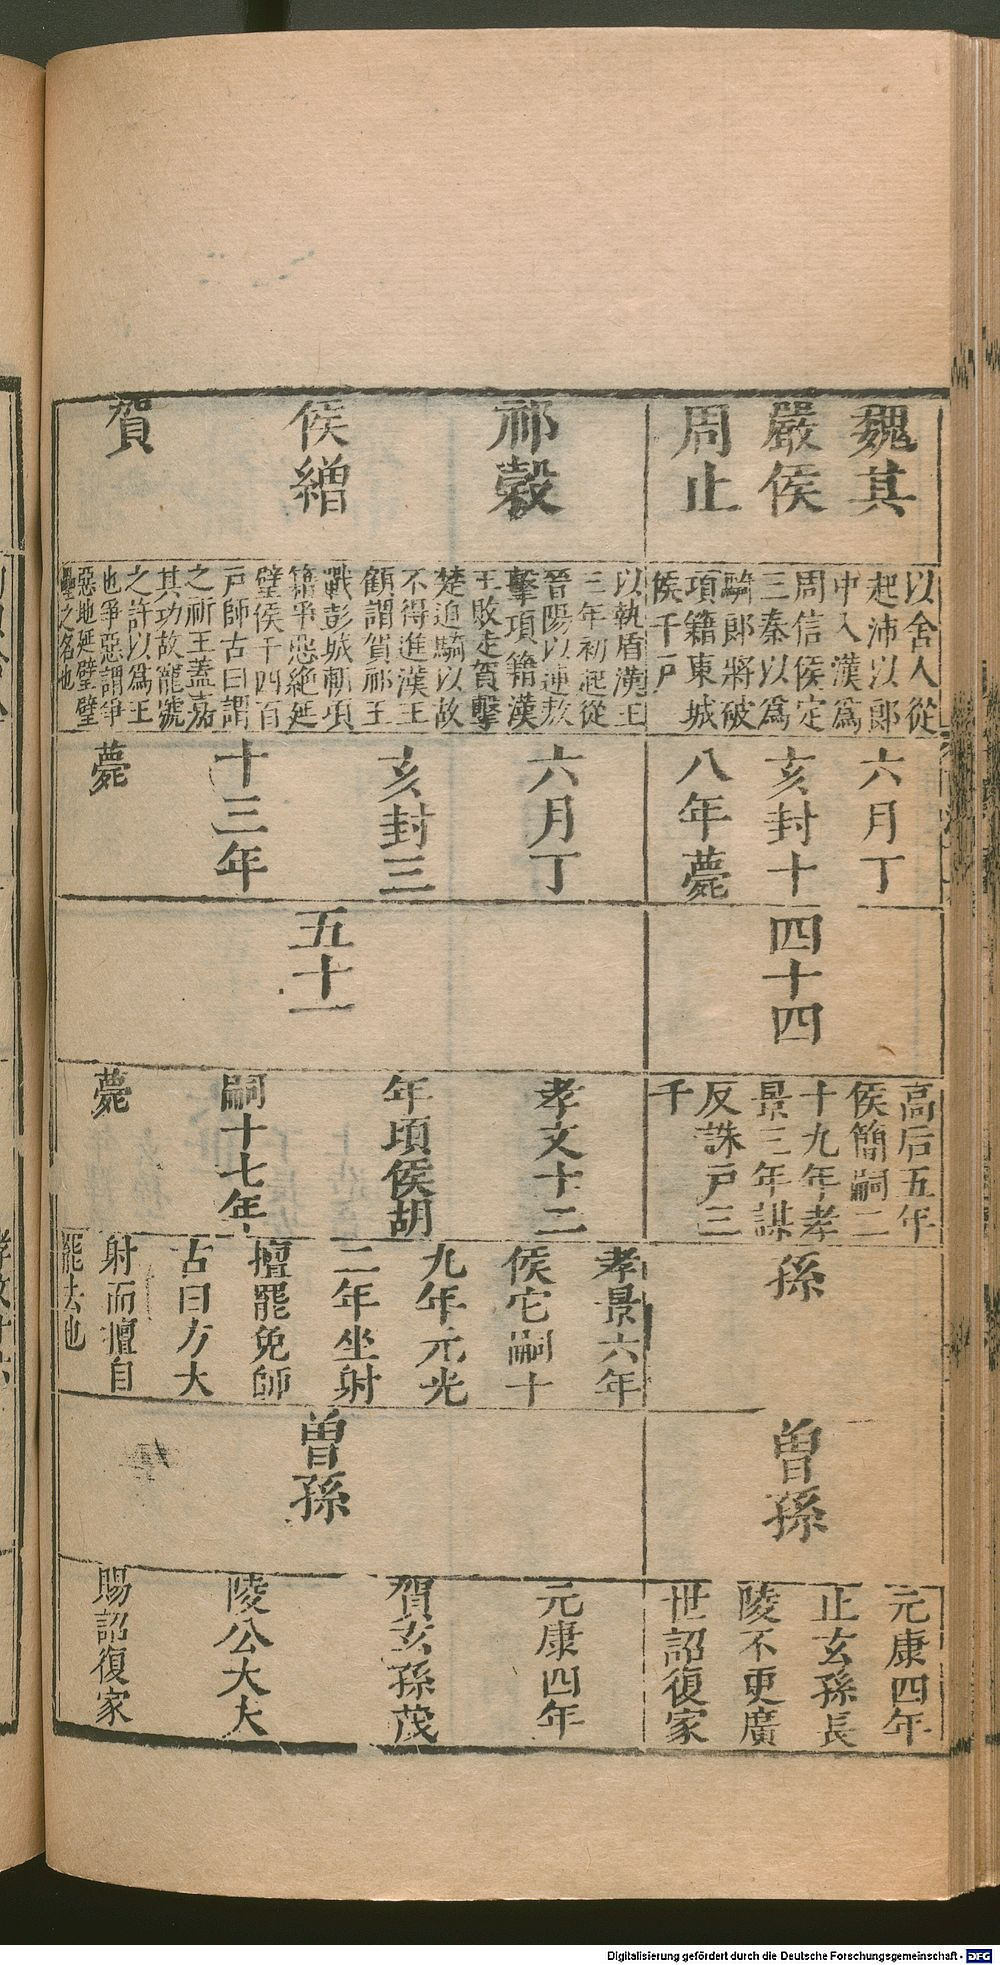 魏其
嚴侯
周止
以舍人從
起沛以郎
中入漢爲
周信侯定
三秦以爲
騎郎將破
項籍東城
侯千戶
六月丁
亥封十
八年薨
四十四
高后五年
侯簡嗣二
十九年孝
景三年謀
反誅戶三
千
孫
曽孫
元康四年
止玄孫長
陵不更廣
世詔復家
祁穀
侯繒
賀
以執盾漢王
三年初起從
晉陽以連敖
擊項籍漢
王敗走賀擊
楚追騎以故
不得進漢王
顧謂賀祁王
戰彭城斬項
籍爭惡絶延
璧侯千四百
戶師古曰謂
之祈王蓋嘉
其功故寵號
之許以爲王
也爭惡謂爭
惡地延壁壁
壘之名也
六月丁
亥封三
十三年
薨
五十一
孝文十二
年頃侯胡
嗣十七年
薨
孝景六年
侯它嗣十
九年元光
二年坐射
擅罷免師
古曰方大
射而擅自
罷去也
曽孫
元康四年
賀玄孫茂
陵公大夫
賜詔復家
Digitalisierung gefördert durch die Deutsche Forschungsgemeinschaft - DFG